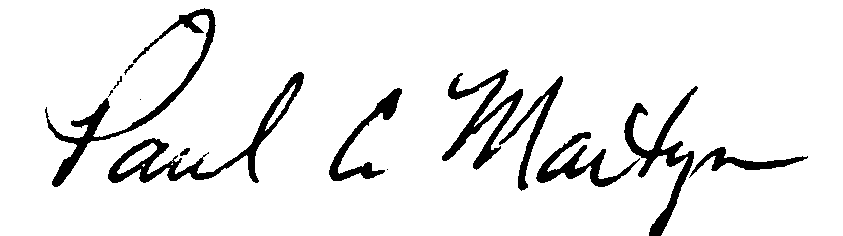 Paul C Martyn